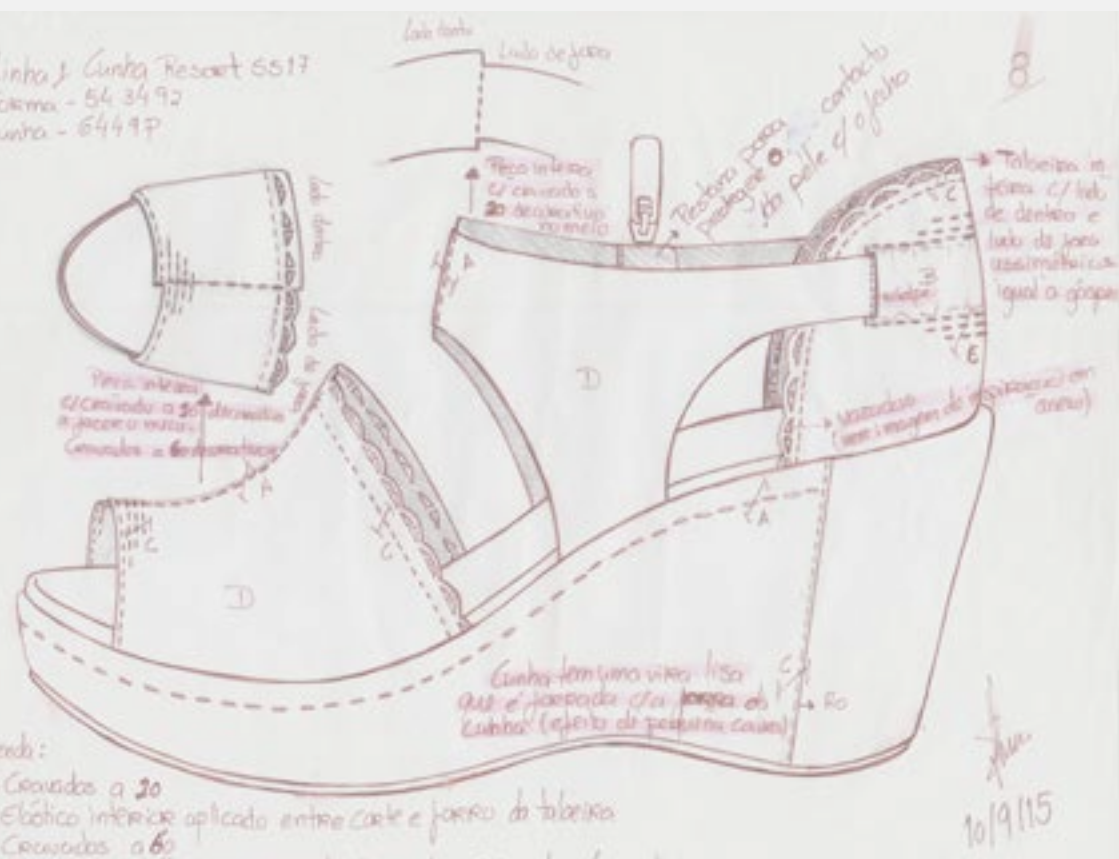 Linha 1 Cunha Resort SS17
Forma - 54 3492
Cunha - 6449P
Lado dentro
Lado de fora
Peça inteira
c/ cravado a
20 decorativo
no meio
Pestana para
proteger o contacto
da pele c/ o fecho
Taloeira in
teira c/ lado
de dentro e
lado de fora
assimétricos
igual a gáspea
Lado dentro
Lado de fora
Peça inteira
c/ cravado a 20 decorativo
a fazer o
Cravados a 60 decorativos
A
C
D
A
C
D
E
A
C
vazados
(ver imagem de inspiração em
anexo)
Cunha tem uma vira lisa
que é forrada c/ a forra da
cunha (efeito de pequena caixa)
C
Ro
Cravados a 20
Elástico interior aplicado entre corte e forro da taloeira
Cravados a 60
10/9/15